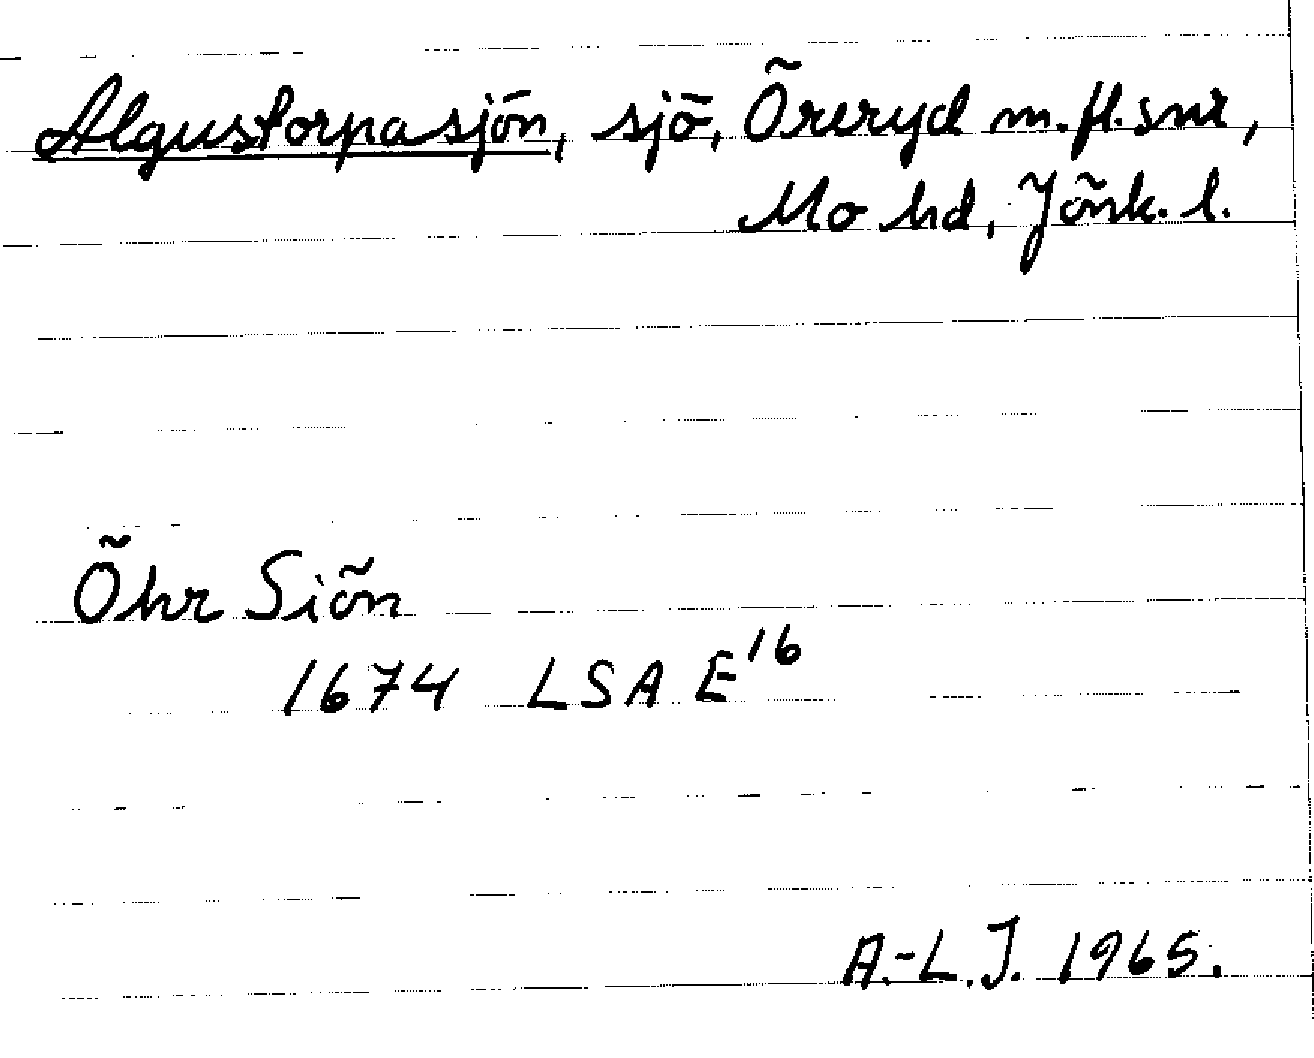 Algustorpasjön, sjö, Öreryd m.fl. snr,
Mo hd, Jönk. l.
Öhr Siön
1674 LSA E16
A.-L.J. 1965.